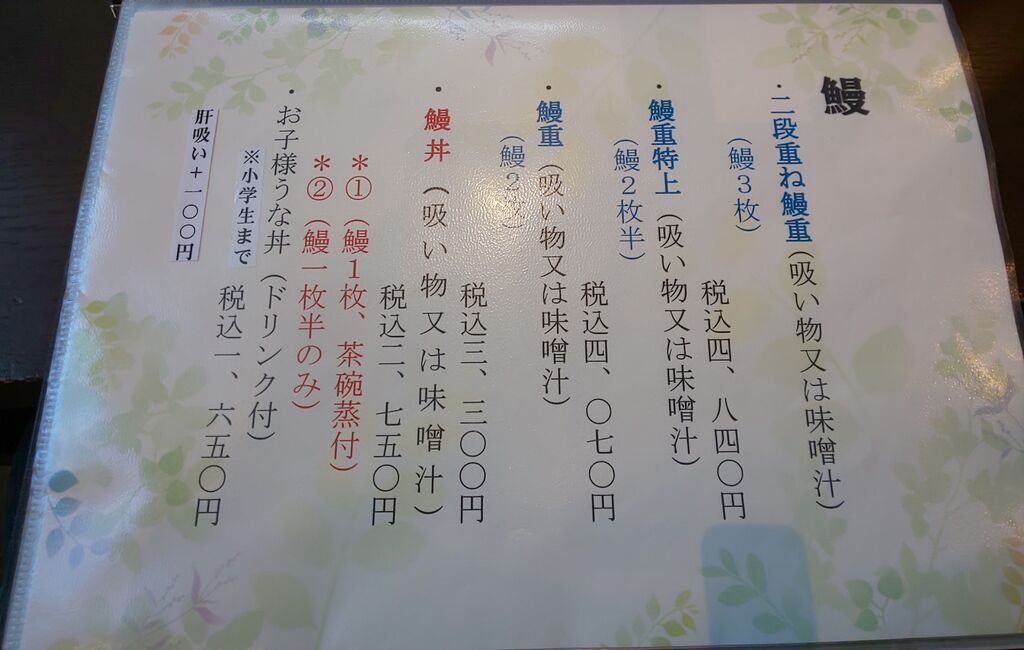 鰻
・二段重ね鰻重(吸い物又は味噌汁)
(鰻３枚)
税込四、八四〇円
・鰻重特上(吸い物又は味噌汁)
(鰻２枚半)
税込四、〇七〇円
・鰻重(吸い物又は味噌汁)
(鰻２枚)
税込三、三〇〇円
・鰻丼(吸い物又は味噌汁)
税込二、七五〇円
＊①(鰻１枚、茶碗蒸付)
＊②(鰻一枚半のみ)
・お子様うな丼(ドリンク付)
※小学生まで
税込一、六五〇円
肝吸い＋一〇〇円